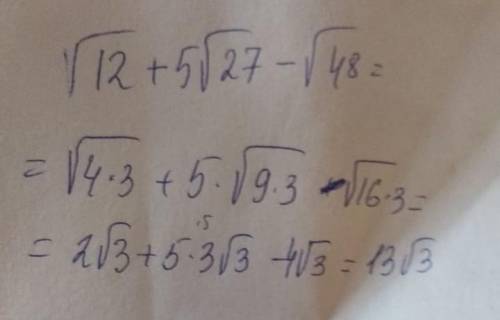 √12 + 5√27 - √48 =
= √4·3 + 5·√9·3 - √16·3 =
·5
= 2√3 + 5·3√3 - 4√3 = 13√3